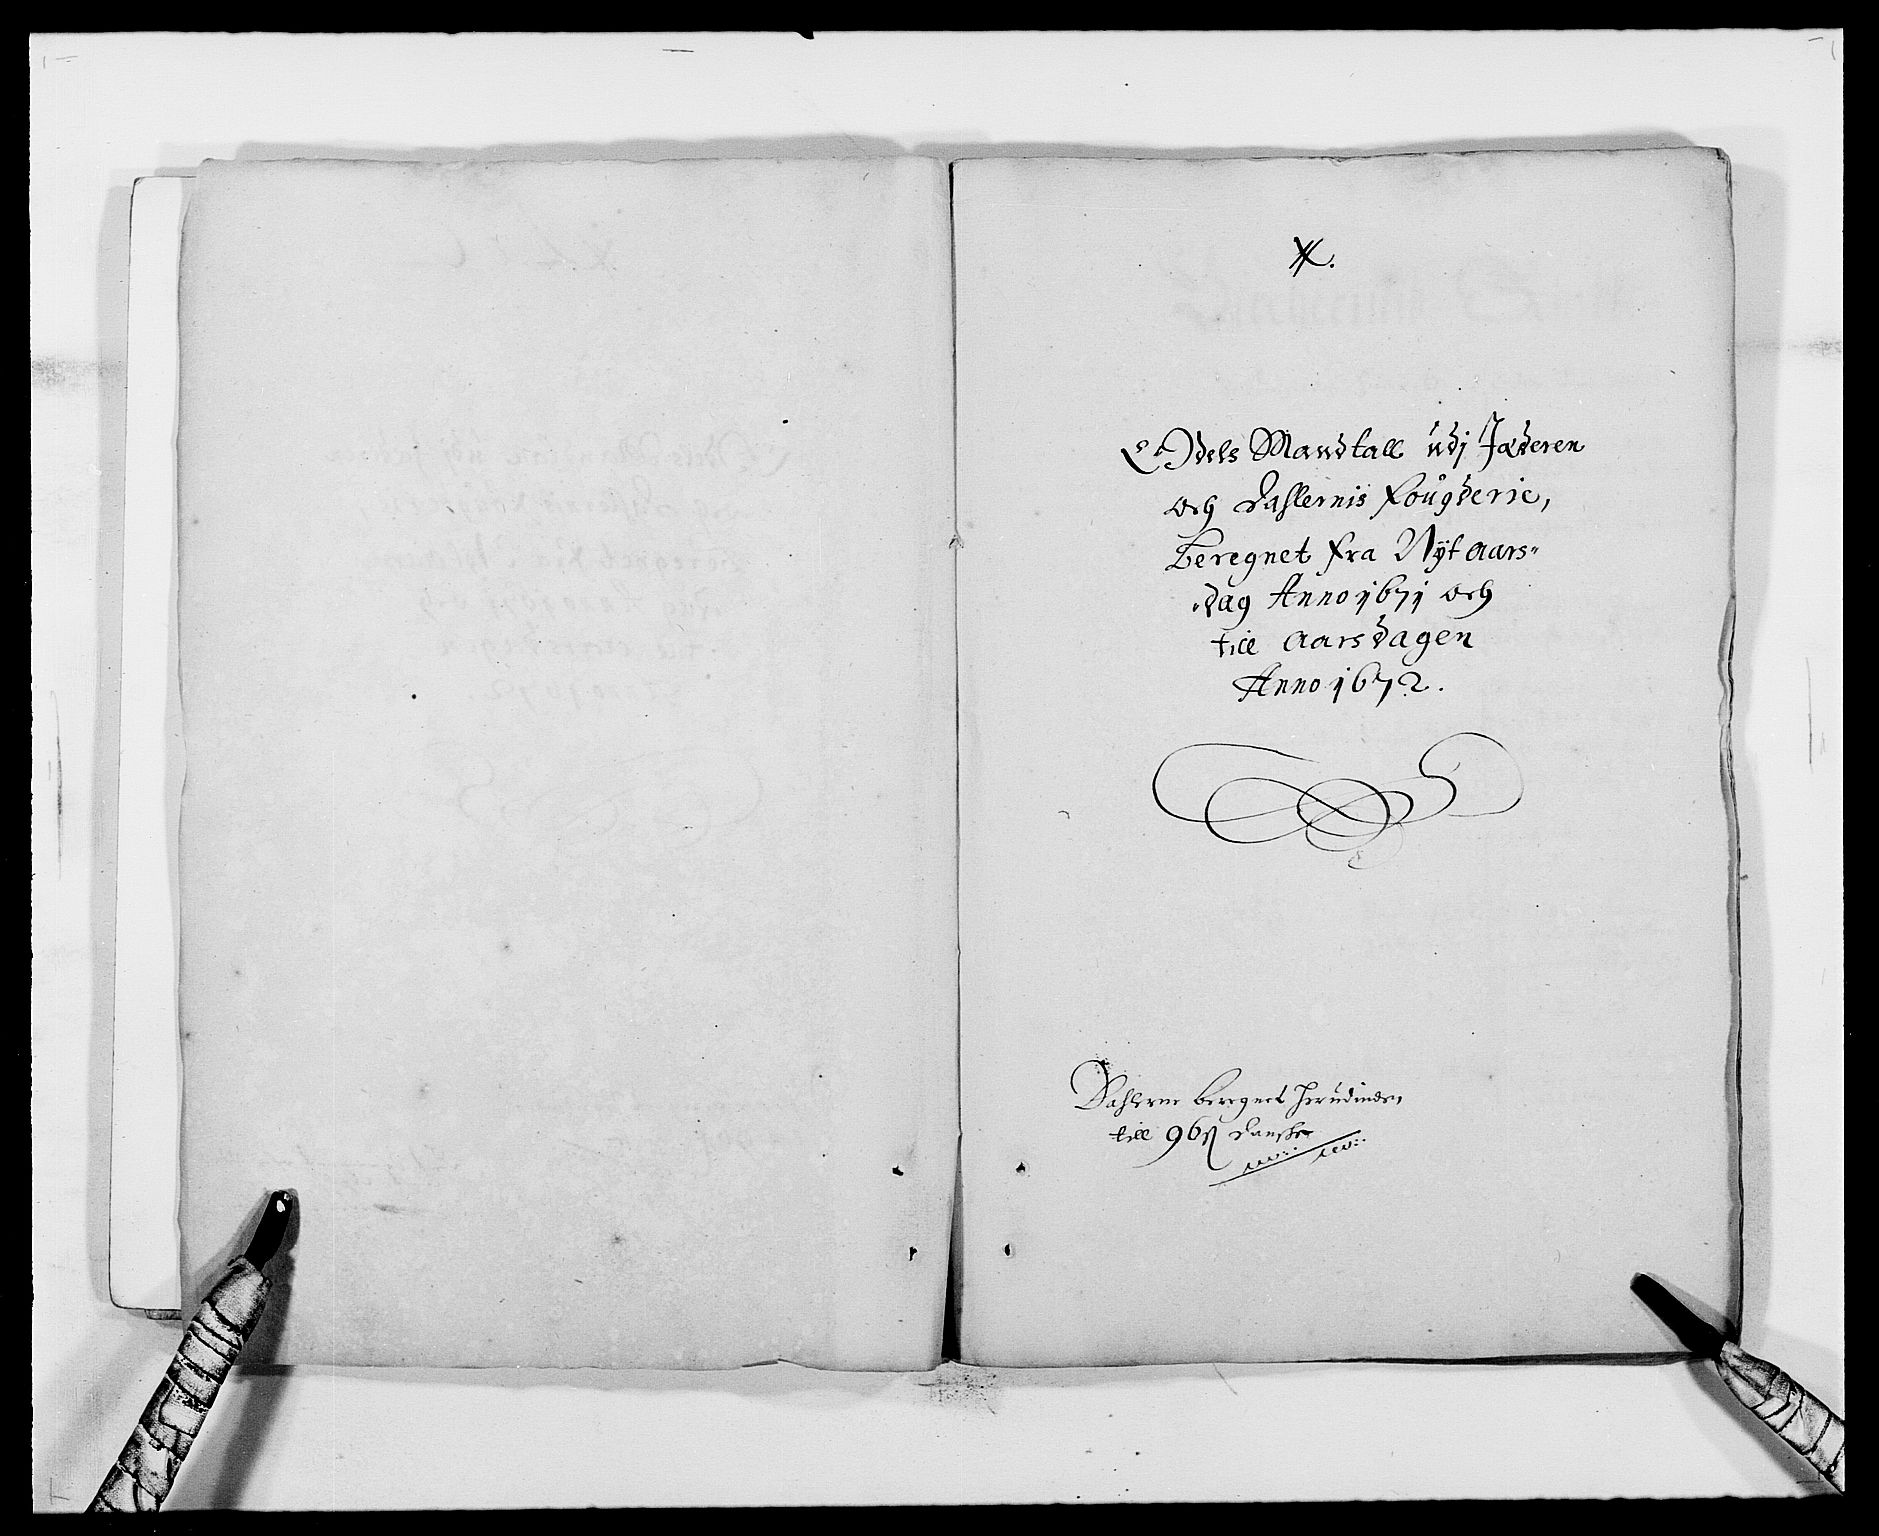 X.
Odels Mandtall udj Jæderen
och Dahlernis fougderie,
Beregnet fra Nyt aars-
dag Anno 1671 och
till aarsdagen
Anno 1672.
Dahlerne beregnet herudinden,
till 96 ß danske